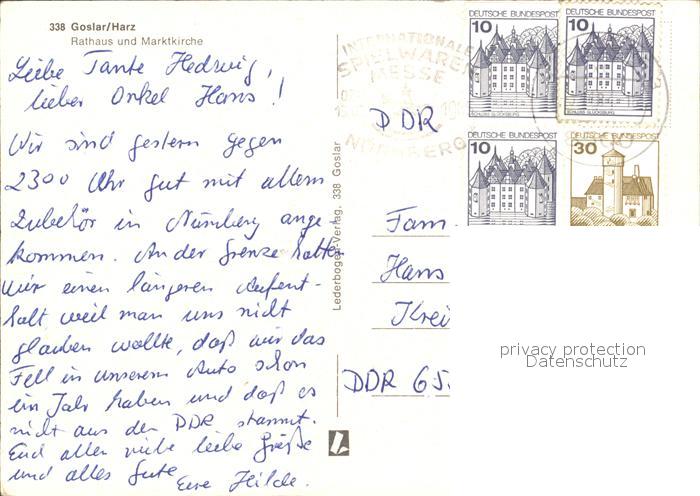 338 Goslar/Harz
Rathaus und Marktkirche
Liebe Tante Hedwig,
lieber Onkel Hans!
Wir sind gestern gegen
2300 Uhr gut mit allem
Zubehör in Nürnberg ange-
kommen. An der Grenze hatten
wir einen längeren Aufent-
halt weil man uns nicht
glauben wollte, daß wir das
Fell in unserem Auto schon
ein Jahr haben und daß es
nicht aus der DDR stammt.
Euch allen viele liebe Grüße
und alles Gute
Eure Hilde.
Lederbogen-Verlag, 338 Goslar
INTERNATIONALE
SPIELWAREN
MESSE
NÜRNBERG
DEUTSCHE BUNDESPOST
10
SCHLOSS GLÜCKSBURG
DEUTSCHE BUNDESPOST
10
SCHLOSS GLÜCKSBURG
DEUTSCHE BUNDESPOST
10
SCHLOSS GLÜCKSBURG
DEUTSCHE BUNDESPOST
30
DDR
Fam
Hans
Krei
DDR 65
privacy protection
Datenschutz